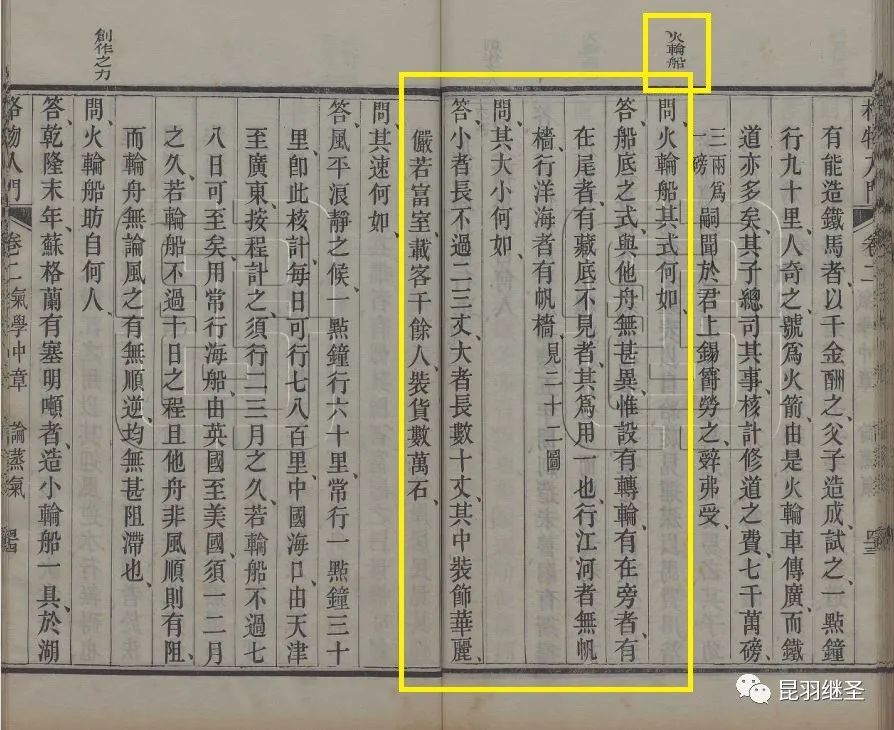 火輪船
格物入門
卷二
有能造鐵馬者以千金酬之父子造成試之一點鐘
行九十里人奇之號爲火箭由是火輪車傳廣而鐵
道亦多矣其子總司其事核計修道之費七千萬磅
三兩爲一磅嗣聞於君上錫爵勞之辭弗受
問火輪船其式何如
答船底之式與他舟無甚異惟設有轉輪有在旁者有
在尾者有藏底不見者其爲用一也行江河者無帆
檣行洋海者有帆檣見二十二圖
問其大小何如
答小者長不過二三丈大者長數十丈其中裝飾華麗
儼若富室載客千餘人裝貨數萬石
問其速何如
答風平浪靜之候一點鐘行六十里常行一點鐘三十
里卽此核計每日可行七八百里中國海口由天津
至廣東按程計之須行二三月之久若輪船不過七
八日可至矣用常行海船由英國至美國須一二月
之久若輪船不過十日之程且他舟非風順則有阻
而輪舟無論風之有無順逆均無甚阻滯也
創作之力
問火輪船昉自何人
答乾隆末年蘇格蘭有塞明噸者造小輪船一具於湖
格物入門
卷二氣學中章
論蒸氣
昆羽继圣